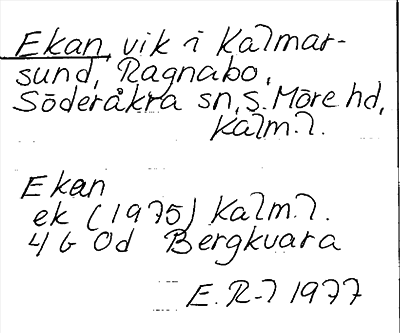 Ekan, vik i Kalmar-
sund, Ragnabo,
Söderåkra sn, S. Möre hd,
Kalm. l.
Ekan
ek (1975) Kalm. l.
4 G 0d Bergkvara
E. R-l 1977